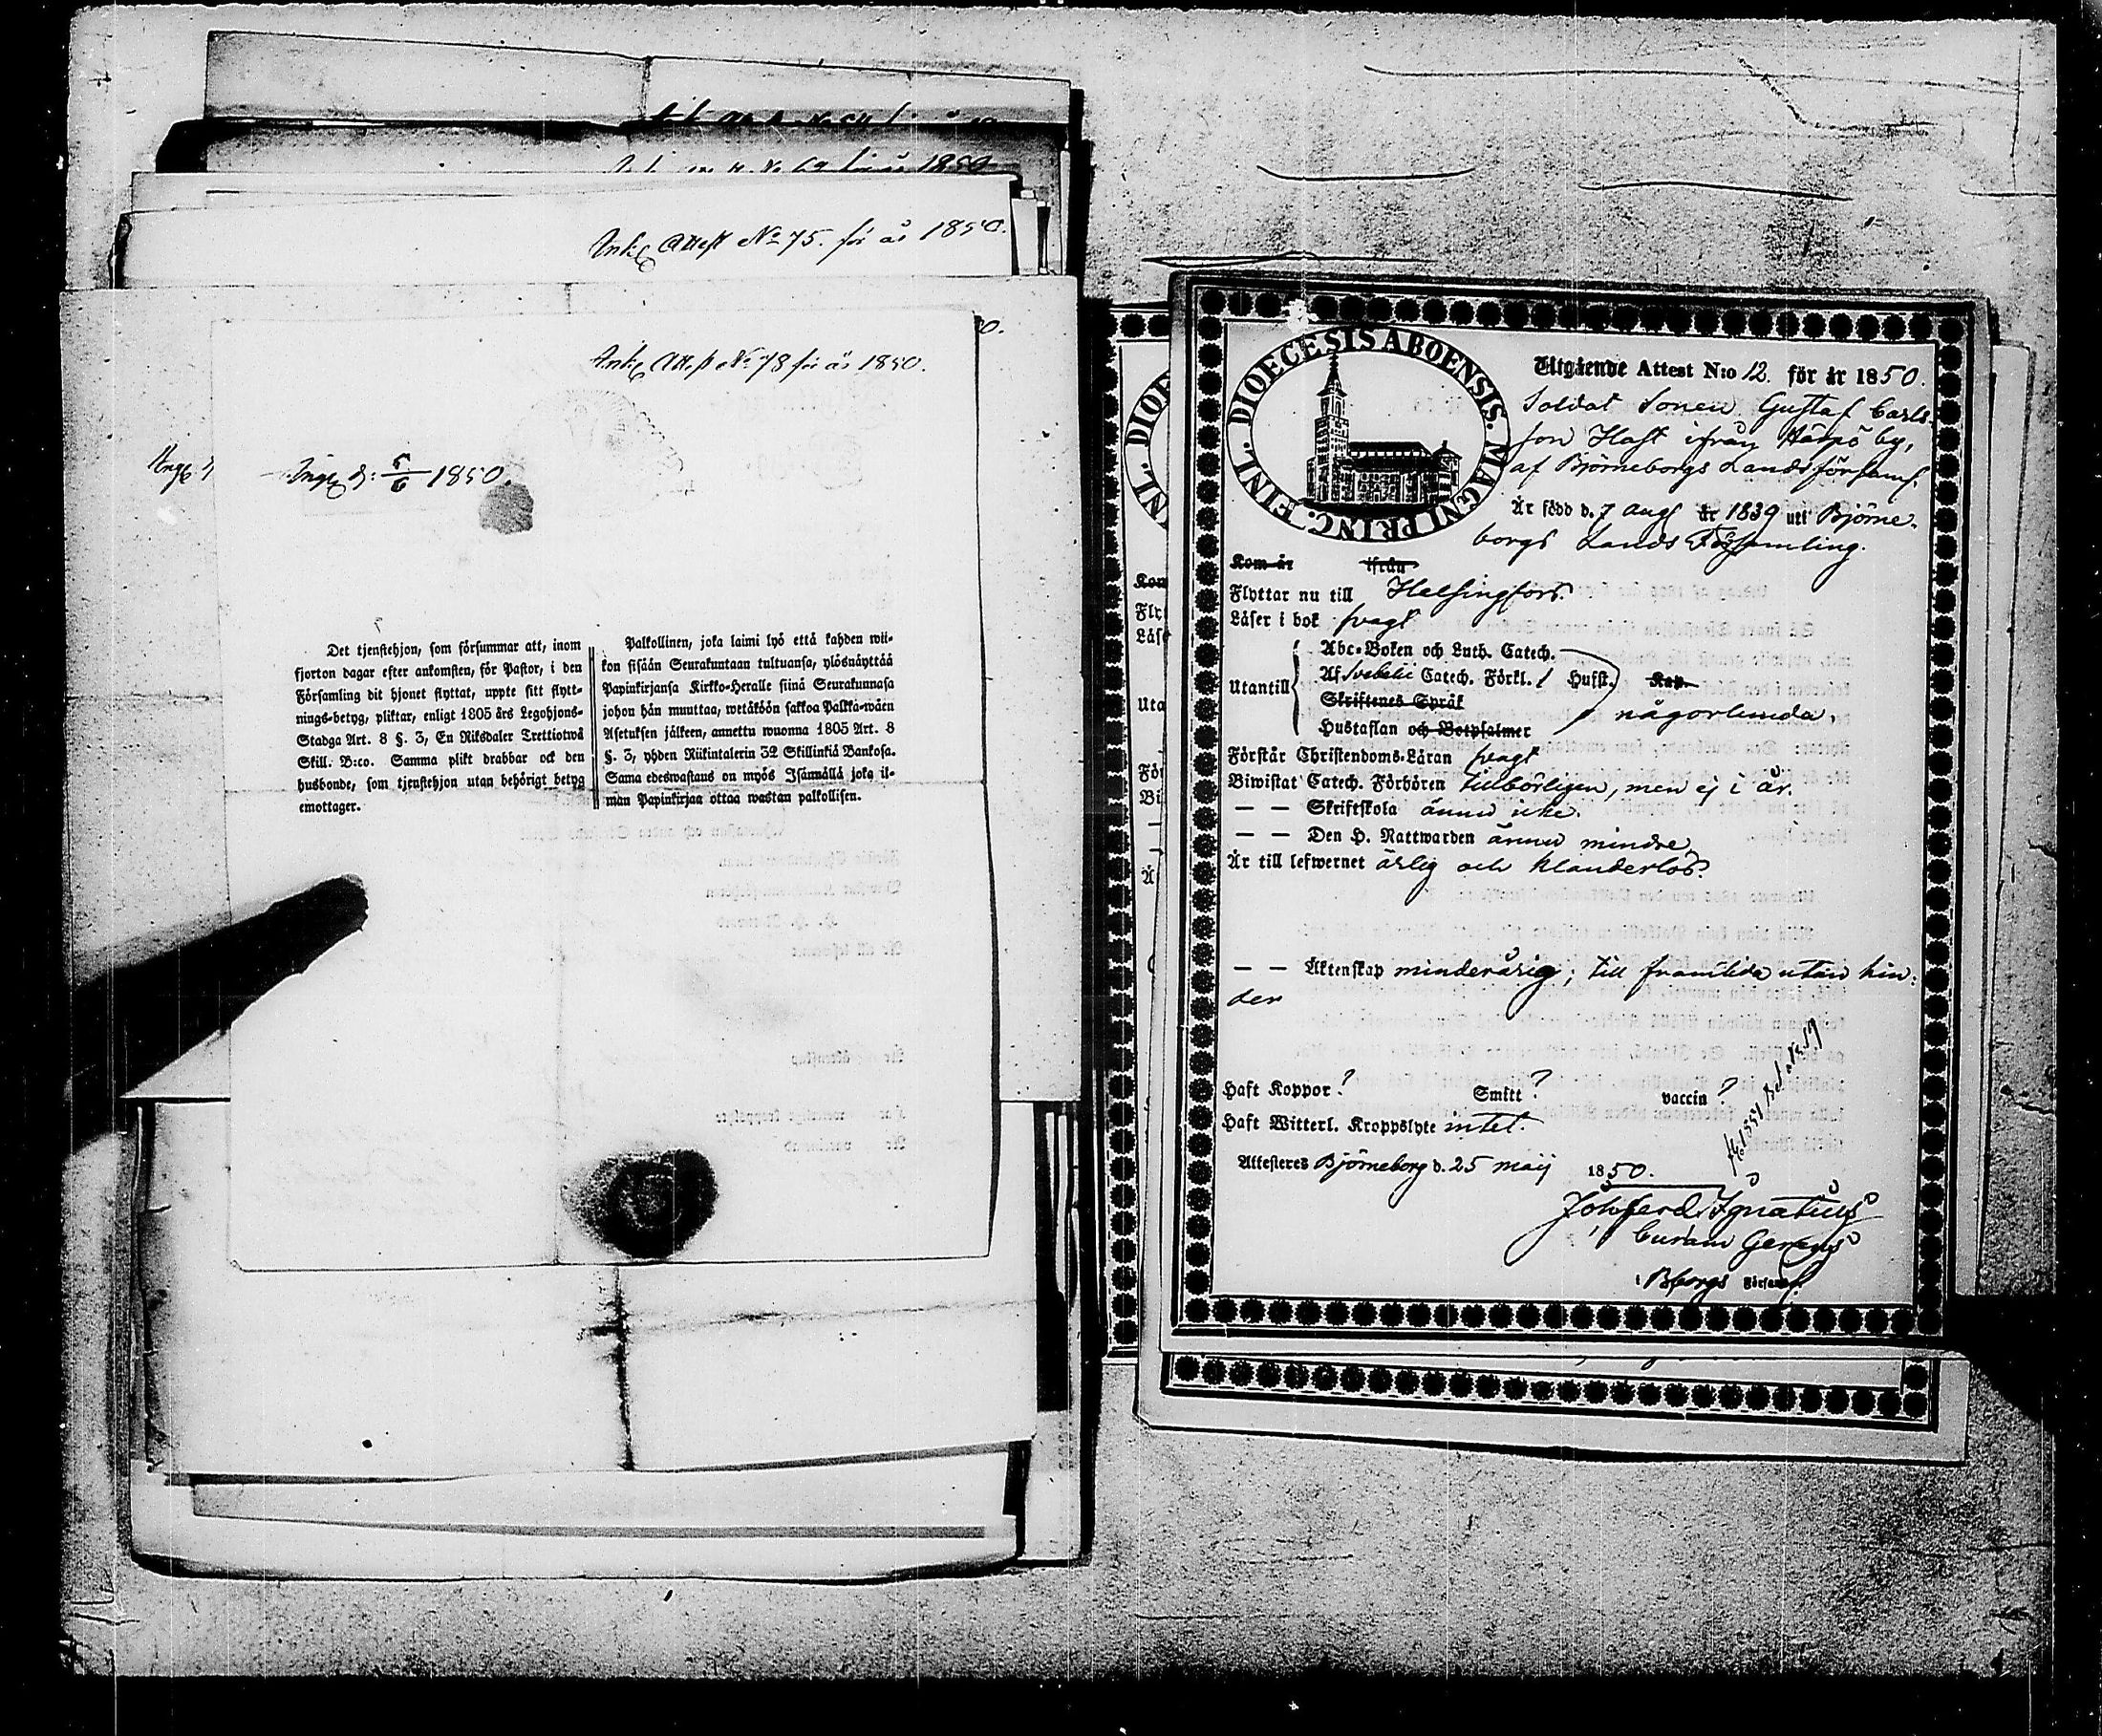 för år 1850
Ank: Attest No 75. för år 1850.
0.
Ank: Attest No 78 för år 1850.
Ing: d: 5/6 1850.
Det tjenstehjon, som försummar att, inom
fjorton dagar efter ankomsten, för Pastor, i den
Församling dit hjonet flyttat, uppte sitt flytt-
nings-betyg, pliktar, enligt 1805 års Legohjons-
Stadga Art. 8 §. 3, En Riksdaler Trettiotwå
Skill. B:co. Samma plikt drabbar ock den
husbonde, som tjenstehjon utan behörigt betyg
emottager.
Palkollinen, joka laimi lyö että kahden wii-
kon sisään Seurakuntaan tultuansa, ylösnäyttää
Papinkirjansa Kirkko-Heralle siinä Seurakunnasa
johon hän muuttaa, wetäköön sakkoa Palkka-wäen
Asetuksen jälkeen, annettu wuonna 1805 Art. 8
§. 3, yhden Riikintalerin 32 Skillinkiä Bankosa.
Sama edeswastaus on myös Isännällä joka il-
man Papinkirjaa ottaa wastan palkollisen.
FINL. DIOECESIS ABOENSIS. MAGNI PRINC.
Utgående Attest N:o 12. för år 1850.
Soldat Sonen Gustaf Carls-
son Hast ifrån Härpö by,
af Björneborgs Landsförsaml.
Är född d. 7 Aug år 1839 uti Björne-
borgs Lands Församling.
Kom år ifrån
Flyttar nu till Helsingfors.
Läser i bok svagt
Utantill
Abc-Boken och Luth. Catech.
Af Svebelii Catech. Förkl. Hufst. Kap.
Skriftenes Språk
någorlunda.
Hustaflan och Botpsalmer
Förstår Christendoms-Läran svagt
Biwistat Catech. Förhören tillbörligen, men ej i år.
— — Skriftskola ännu icke.
— — Den H. Nattwarden ännu mindre
Är till lefwernet ärlig och klanderlös.
— — Äktenskap minderårig; till framtida utan hin-
der
Haft Koppor ? Smitt ? vaccin ?
Haft Witterl. Kroppslyte intet.
Attesteres Björneborg d. 25 maij 1850.
Joh Ferd. Ignatius
Curam Gerens
i Bborgs Församl.